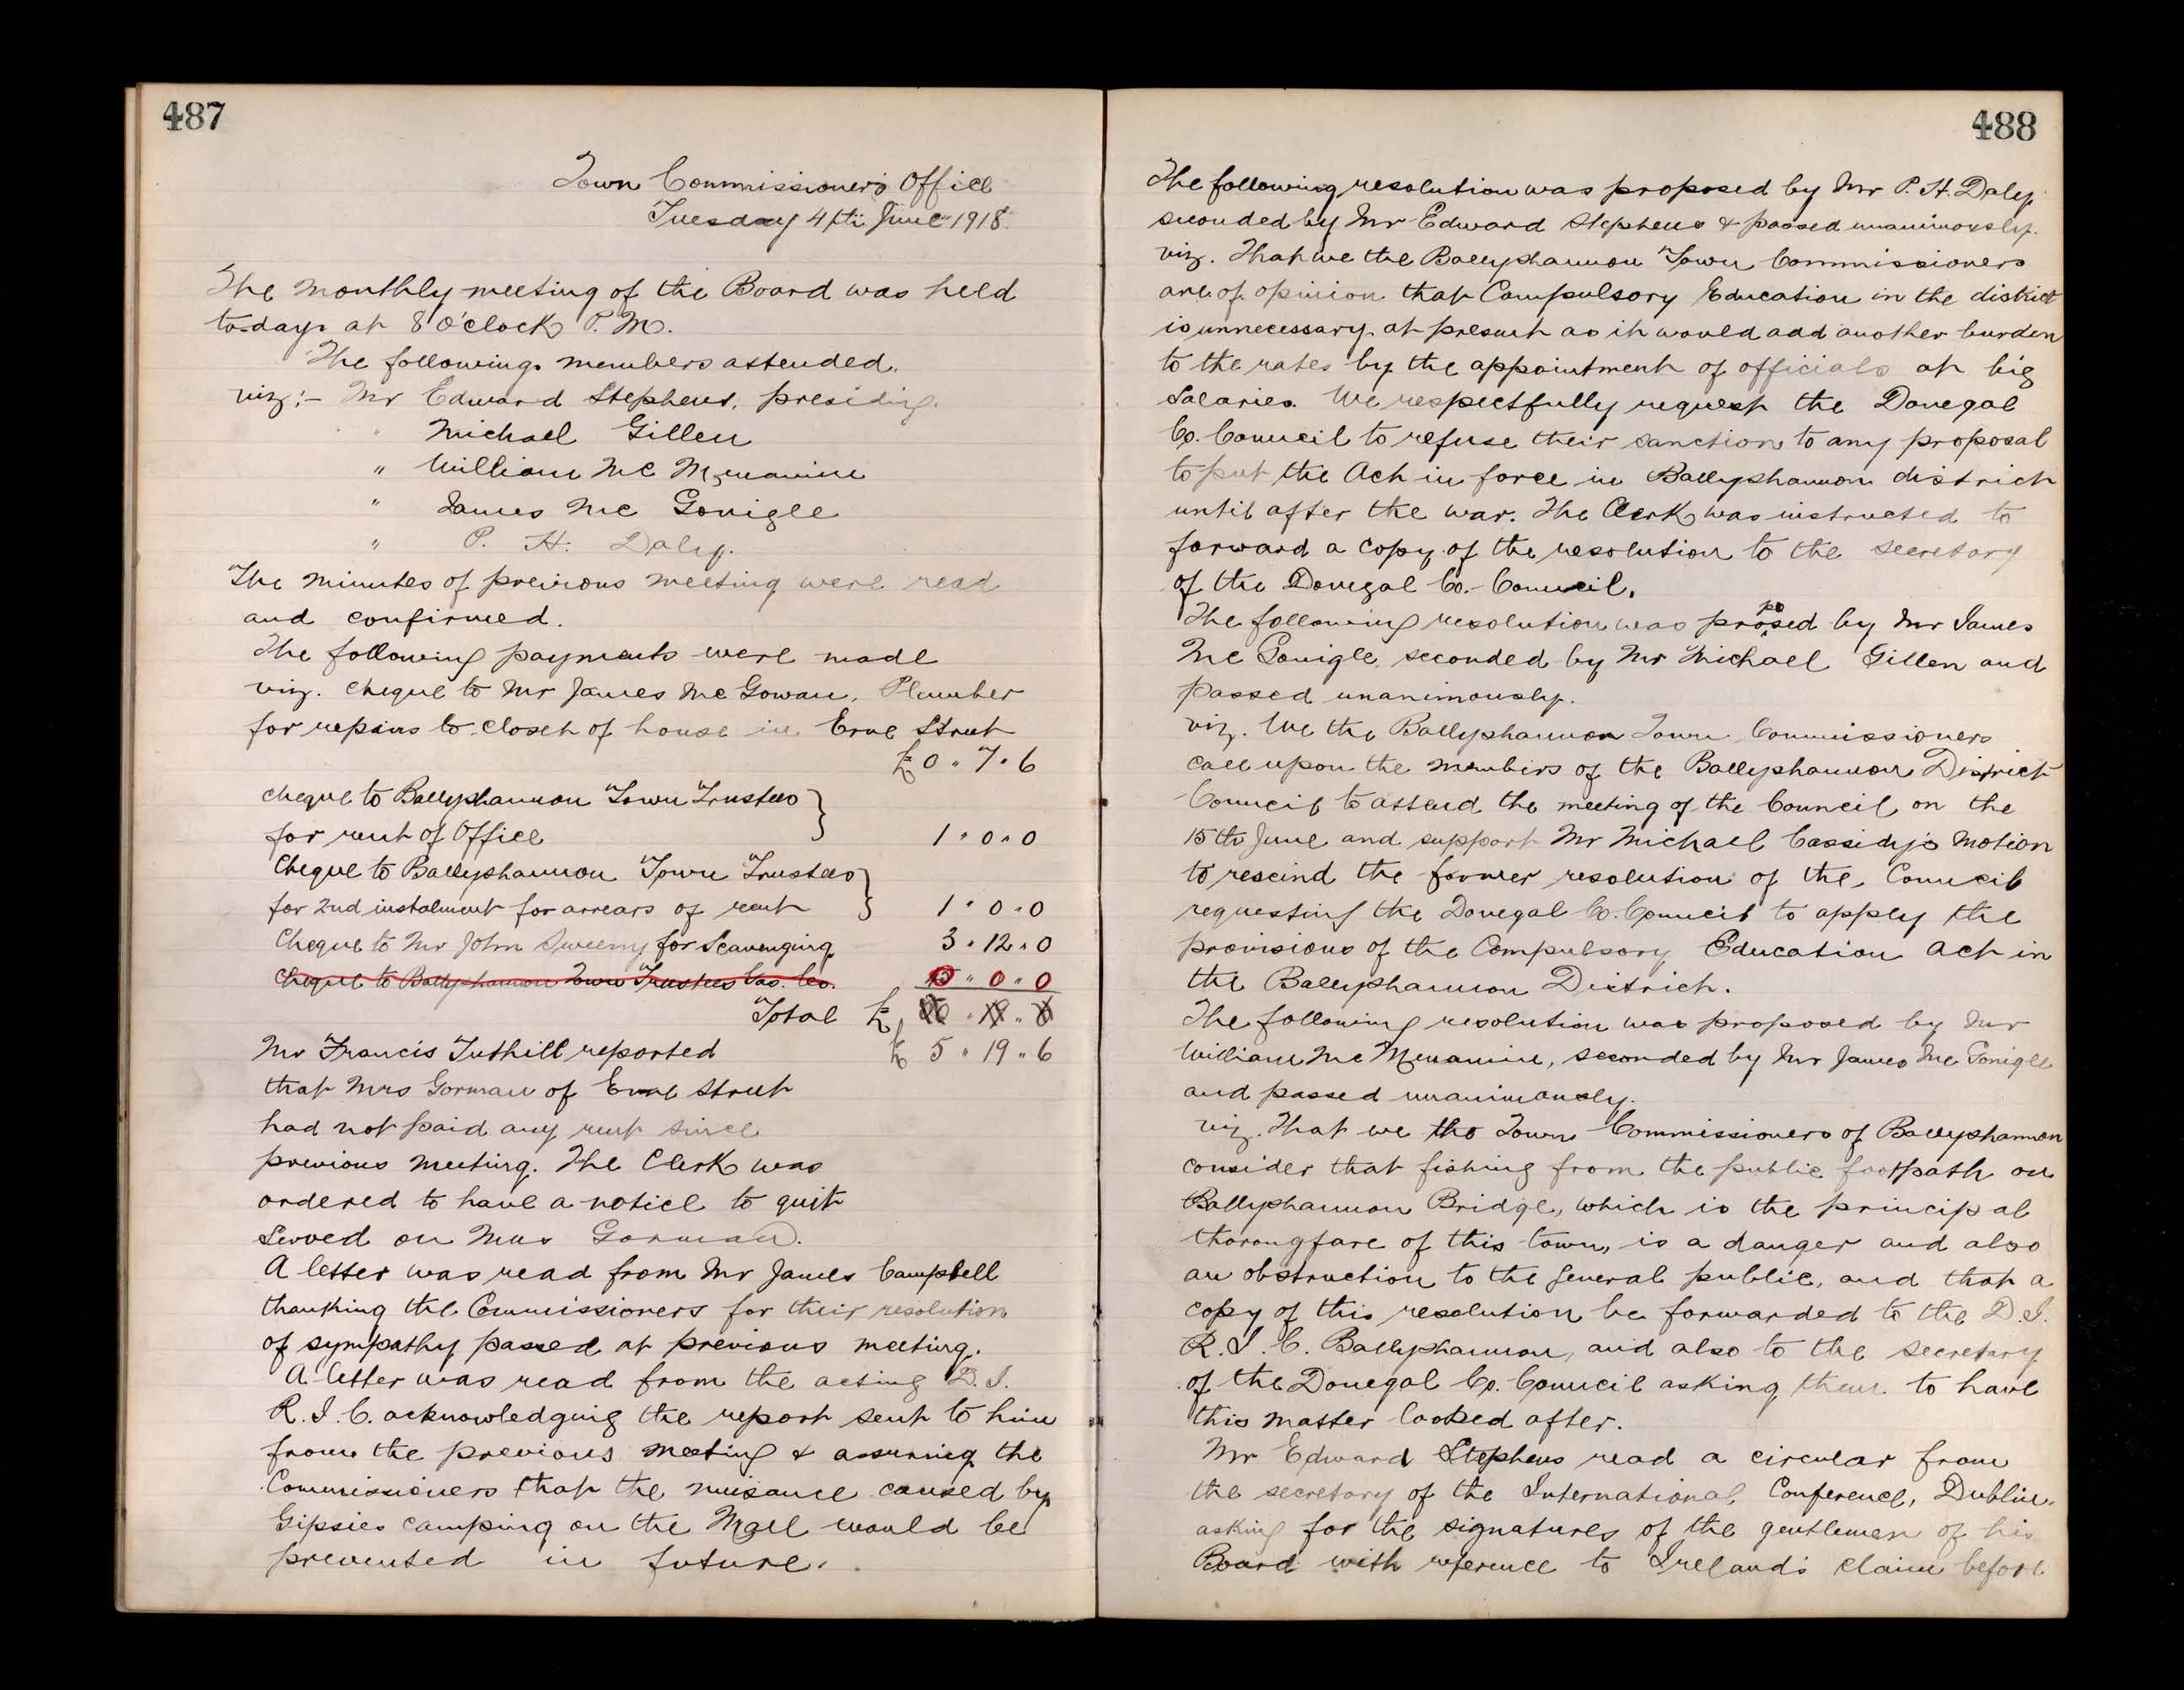 487
Town Commissioner's Office
Tuesday 4th June 1918.
The monthly meeting of the Board was held
to-day at 8 O'clock P.M.
The following members attended.
viz:- Mr Edward Stephens, presiding.
Michael Gillen
" William Mc Menamin
" James Mc Gonigle
" P. H. Daly.
The minutes of previous meeting were read
and confirmed.
The following payments were made
viz. cheque to Mr James Mc Gowan, Plumber
for repairs to closet of house in Erne Street
£ 0 " 7 " 6
cheque to Ballyshannon Town Trustees }
for rent of Office 1 " 0 " 0
Cheque to Ballyshannon Town Trustees }
for 2nd instalment for arrears of rent 1 " 0 " 0
Cheque to Mr John Sweeny for Scavenging 3 " 12 " 0
Cheque to Ballyshannon Town Trustees Gas. Co. 0 " 0
Total £
Mr Francis Tuthill reported £ 5 " 19 " 6
that Mrs Gorman of Erne Street
had not paid any rent since
previous meeting. The Clerk was
ordered to have a notice to quit
served on Mrs Gorman.
A letter was read from Mr James Campbell
thanking the Commissioners for their resolution
of sympathy passed at previous meeting.
A letter was read from the acting D.I.
R.I.C. acknowledging the report sent to him
from the previous meeting & assuring the
Commissioners that the nuisance caused by
Gipsies camping on the Mall would be
prevented in future.
488
The following resolution was proposed by Mr P. H. Daly
seconded by Mr Edward Stephens & passed unanimously.
viz. That we the Ballyshannon Town Commissioners
are of opinion that Compulsory Education in the district
is unnecessary at present as it would add another burden
to the rates by the appointment of officials at big
Salaries. We respectfully request the Donegal
Co. Council to refuse their sanction to any proposal
to put the Act in force in Ballyshannon district
until after the war. The Clerk was instructed to
forward a copy of the resolution to the secretary
of the Donegal Co. Council.
The following resolution was proposed by Mr James
Mc Gonigle seconded by Mr Michael Gillen and
passed unanimously.
viz. We the Ballyshannon Town Commissioners
call upon the members of the Ballyshannon District
Council to attend the meeting of the Council on the
15th June and support Mr Michael Cassidy's motion
to rescind the former resolution of the Council
requesting the Donegal Co. Council to apply the
provisions of the Compulsory Education Act in
the Ballyshannon District.
The following resolution was proposed by Mr
William Mc Menamin, seconded by Mr James Mc Gonigle
and passed unanimously.
viz. That we the Town Commissioners of Ballyshannon
consider that fishing from the public footpath on
Ballyshannon Bridge, which is the principal
thorougfare of this town, is a danger and also
an obstruction to the general public, and that a
copy of this resolution be forwarded to the D.I.
R.I.C. Ballyshannon, and also to the secretary
of the Donegal Co. Council asking them to have
this matter looked after.
Mr Edward Stephens read a circular from
the secretary of the International Conference, Dublin.
asking for the signatures of the gentlemen of his
Board with reference to Ireland's claim before